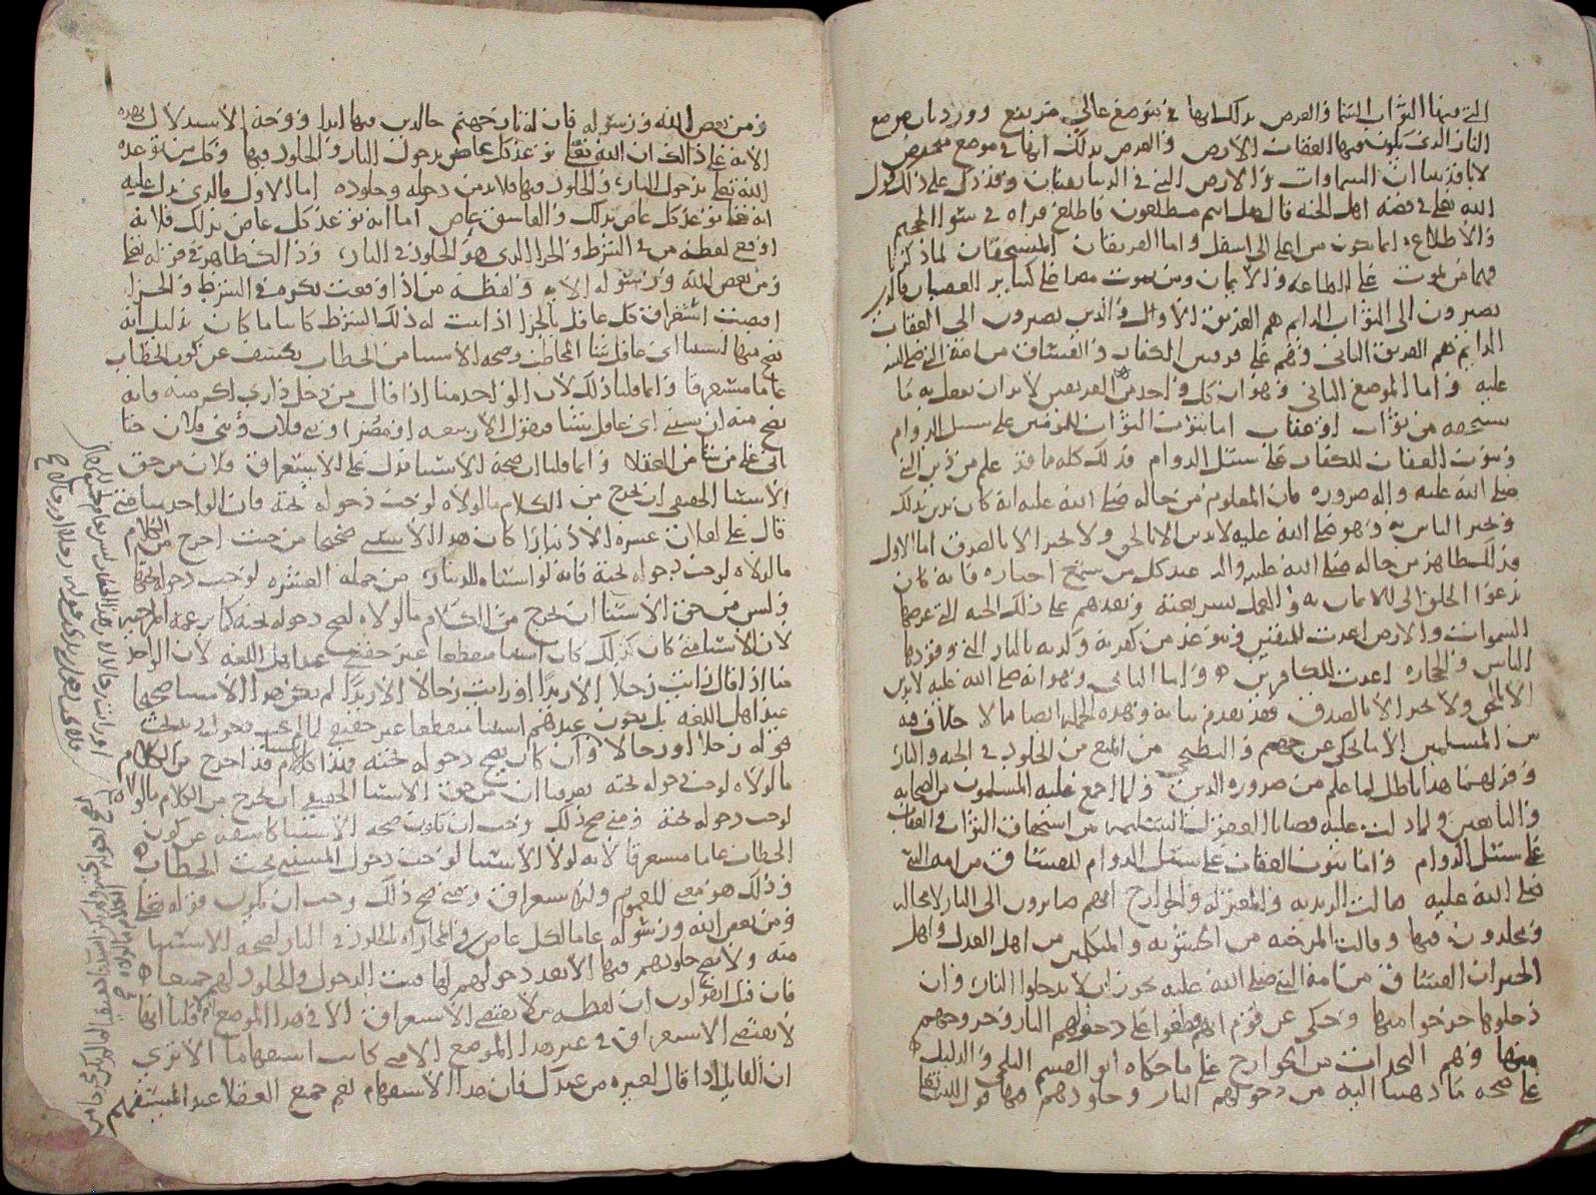 التي فيها الثواب السماء والعرض بذلك انها في موضع عالي مرتفع وورد بان موضع
النار الذي يكون فيها العقاب الارض والغرض بذلك انها في موضع منخفض
لانا قد بينا ان السماوات والارض التي في الدنيا يفنيان وقد دل على ذلك قول
الله تعالى في قصة اهل الجنة قال هل انتم مطلعون فاطلع فراه في سواء الجحيم
والاطلاع انما يكون من اعلى الى اسفل واما الفريقان المستحقان لما ذكرنا
فهما من يموت على الطاعة والايمان ومن يموت مصرا على كبائر العصيان فالذين
يصيرون الى الثواب الدايم هم الفريق الاول والذين يصيرون الى العقاب
الدايم هم الفريق الثاني وهم على قسمين الكفار والفساق من امة النبي صلى الله
عليه واما الموضع الثاني وهو ان كل واحد من الفريقين لابد ان يفعل به ما
يستحقه من ثواب او عقاب اما ثبوت الثواب للمؤمنين على سبيل الدوام
وثبوت العقاب للكفار على سبيل الدوام فذلك كله ما قد علم من دين النبي
صلى الله عليه واله ضرورة فان المعلوم من حاله صلى الله عليه انه كان يدين بذلك
ويخبر الناس به وهو صلى الله عليه لا يدين الا بالحق ولا يخبر الا بالصدق اما الاول
فذلك ظاهر من حاله صلى الله عليه واله عند كل من سمع اخباره فانه كان
يدعوا الخلق الى الايمان به والعمل بشريعته ويعدهم على ذلك الجنة التي عرضها
السموات والارض اعدت للمتقين ويتوعد من كفر به وكذبه بالنار التي وقودها
الناس والحجارة اعدت للكافرين واما الثاني وهو انه صلى الله عليه لا يدين
الا بالحق ولا يخبر الا بالصدق فقد تقدم بيانه وهذه الجملة ايضا مما لا خلاف فيه
بين المسلمين الا ما يحكى عن جهم والبطيخي من المنع من الخلود في الجنة والنار
وقولهما هذا باطل لما علم من ضرورة الدين ولما اجمع عليه المسلمون من الصحابة
والتابعين ولما دلت عليه قضايا العقول السليمة من استحقاق الثواب والعقاب
على سبيل الدوام واما ثبوت العقاب على سبيل الدوام للفساق من امة النبي
صلى الله عليه فقالت الزيدية والمعتزلة والخوارج انهم صايرون الى النار لا محالة
ومخلدون فيها وقالت المرجئة من الحشوية والمتكلمين من اهل العدل واهل
الجبر ان الفساق من امة النبي صلى الله عليه يجوز ان لا يدخلوا النار وان
دخلوها خرجوا منها وحكي عن قوم انهم قطعوا على دخولهم النار وخروجهم
منها وهم النجدات من الخوارج على ما حكاه ابو القسم البلخي والدليل
على صحة ما ذهبنا اليه من دخولهم النار وخلودهم فيها قول الله تعالى
ومن يعص الله ورسوله فان له نار جهنم خالدين فيها ابدا ووجه الاستدلال بهذه
الاية على ذلك ان الله تعالى توعد كل عاص بدخول النار والخلود فيها وكل من توعده
الله تعالى بدخول النار والخلود فيها فلابد من دخوله وخلوده اما الاول فالذي يدل عليه
انه تعالى توعد كل عاص بذلك والفاسق عاص اما انه توعد كل عاص بذلك فلانه
اوقع لفظة من في الشرط والجزا الذي هو الخلود في النار وذلك ظاهر في قوله تعالى
ومن يعص الله ورسوله الاية ولفظة من اذا وقعت نكرة في الشرط والجزا
اقتضت استغراق كل عاقل بالجزا اذا ثبت له ذلك الشرط كائنا ما كان بدليل انه
يصح فيها استثنا اي عاقل شا المخاطب وصحة الاستثنا من الخطاب يكشف عن كون الخطاب
عاما مستغرقا وانما قلنا ذلك لان الواحد منا اذا قال من دخل داري اكرمته فانه
يصح منه ان يستثني اي عاقل شا فيقول الا ربيعة او مضر او بني فلان وبني فلان حتا
ياتي على من شا من العقلا وانما قلنا ان صحة الاستثنا تدل على الاستغراق فلان من حق
الاستثنا الحقيقي ان يخرج من الكلام ما لولاه لوجب دخوله تحته فان الواحد منا متى
قال علي لفلان عشرة الا دينارا كان هذا الاستثنى صحيحا من حيث اخرج من الكلام
ما لولاه لوجب دخوله تحته فانه لولا استثناه للدينار من جملة العشرة لوجب دخوله تحتها
وليس من حق الاستثنا ان يخرج من الكلام ما لولاه لصح دخوله تحته كما يزعمه المرجية
لان الاستثنا متى كان كذلك كان استثنا منقطعا غير حقيقي عند اهل اللغة لان الواحد
منا اذا قال رايت رجلا الا زيدا او رايت رجالا الا زيدا لم يكن هذا الاستثنا صحيحا
عند اهل اللغة بل يكون عندهم استثنا منقطعا غير حقيقي لما لم يجب دخوله تحت
قوله رجلا او رجالا وان كان يصح دخوله تحته فلما كان قد اخرج من الكلام
ما لولاه لوجب دخوله تحته عرفنا ان من حق الاستثنا الحقيقي ان يخرج من الكلام ما لولاه
لوجب دخوله تحته ومتى صح ذلك وجب ان تكون صحة الاستثنا كاشفة عن كون
الخطاب عاما مستغرقا لانه لولا الاستثنا لوجب دخول المستثنى تحت الخطاب
وذلك هو معنى العموم والاستغراق ومتى صح ذلك وجب ان يكون قوله تعالى
ومن يعص الله ورسوله عاما لكل عاص في المجازاة بالخلود في النار لصحة الاستثنا
منه ولا يصح خلودهم فيها الا بعد دخولهم لها فثبت الدخول والخلود لهم جميعا
فان قيل انقولون ان لفظة من لا تقتضي الاستغراق الا في هذا الموضع ام لا قلنا انها
لا تقتضي الاستغراق في غير هذا الموضع الا متى كانت استفهاما الا ترى
ان القايل اذا قال لغيره من عندك فان هذا الاستفهام يعم جميع العقلا عند المستفهم